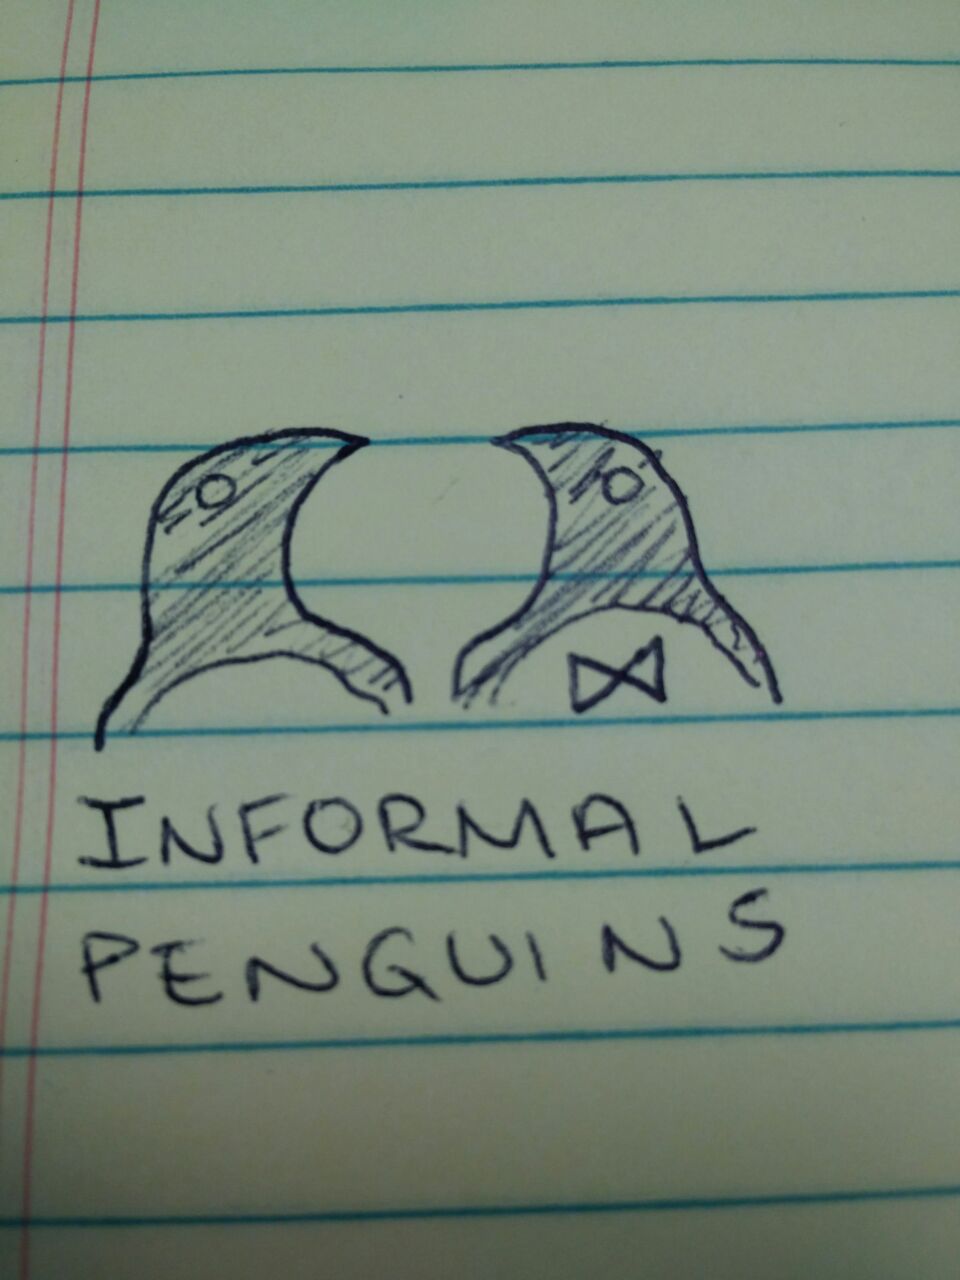 INFORMAL
PENGUINS